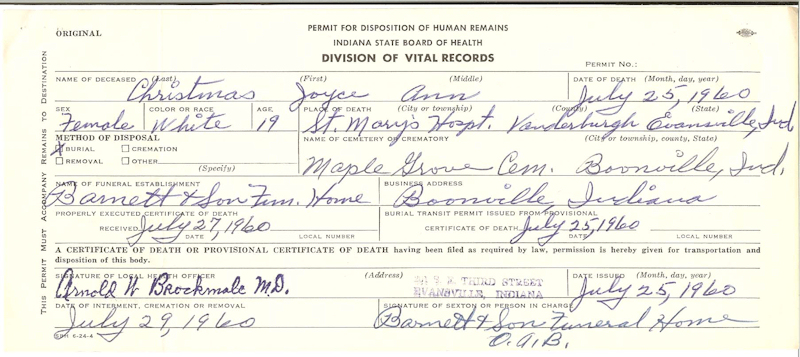 ORIGINAL
PERMIT FOR DISPOSITION OF HUMAN REMAINS
INDIANA STATE BOARD OF HEALTH
DIVISION OF VITAL RECORDS
PERMIT NO.:
THIS PERMIT MUST ACCOMPANY REMAINS TO DESTINATION
NAME OF DECEASED (Last) (First) (Middle) DATE OF DEATH (Month, day, year)
Christmas Joyce Ann July 25, 1960
SEX COLOR OR RACE AGE PLACE OF DEATH (City or township) (County) (State)
Female White 19 St. Mary's Hospt. Vanderburgh Evansville, Ind
METHOD OF DISPOSAL NAME OF CEMETERY OR CREMATORY (City or township, county, State)
X BURIAL CREMATION
REMOVAL OTHER
(Specify)
Maple Grove Cem. Boonville, Ind.
NAME OF FUNERAL ESTABLISHMENT BUSINESS ADDRESS
Barnett & Son Fun. Home Boonville, Indiana
PROPERLY EXECUTED CERTIFICATE OF DEATH BURIAL TRANSIT PERMIT ISSUED FROM PROVISIONAL
RECEIVED July 27, 1960 CERTIFICATE OF DEATH July 25, 1960
DATE LOCAL NUMBER DATE LOCAL NUMBER
A CERTIFICATE OF DEATH OR PROVISIONAL CERTIFICATE OF DEATH having been filed as required by law, permission is hereby given for transportation and
disposition of this body.
SIGNATURE OF LOCAL HEALTH OFFICER (Address) DATE ISSUED (Month, day, year)
Arnold W Brockmole M.D. THIRD STREET
EVANSVILLE, INDIANA July 25, 1960
DATE OF INTERMENT, CREMATION OR REMOVAL SIGNATURE OF SEXTON OR PERSON IN CHARGE
July 29, 1960 Barnett & Son Funeral Home
O.A.B.
SBH 6-24-4